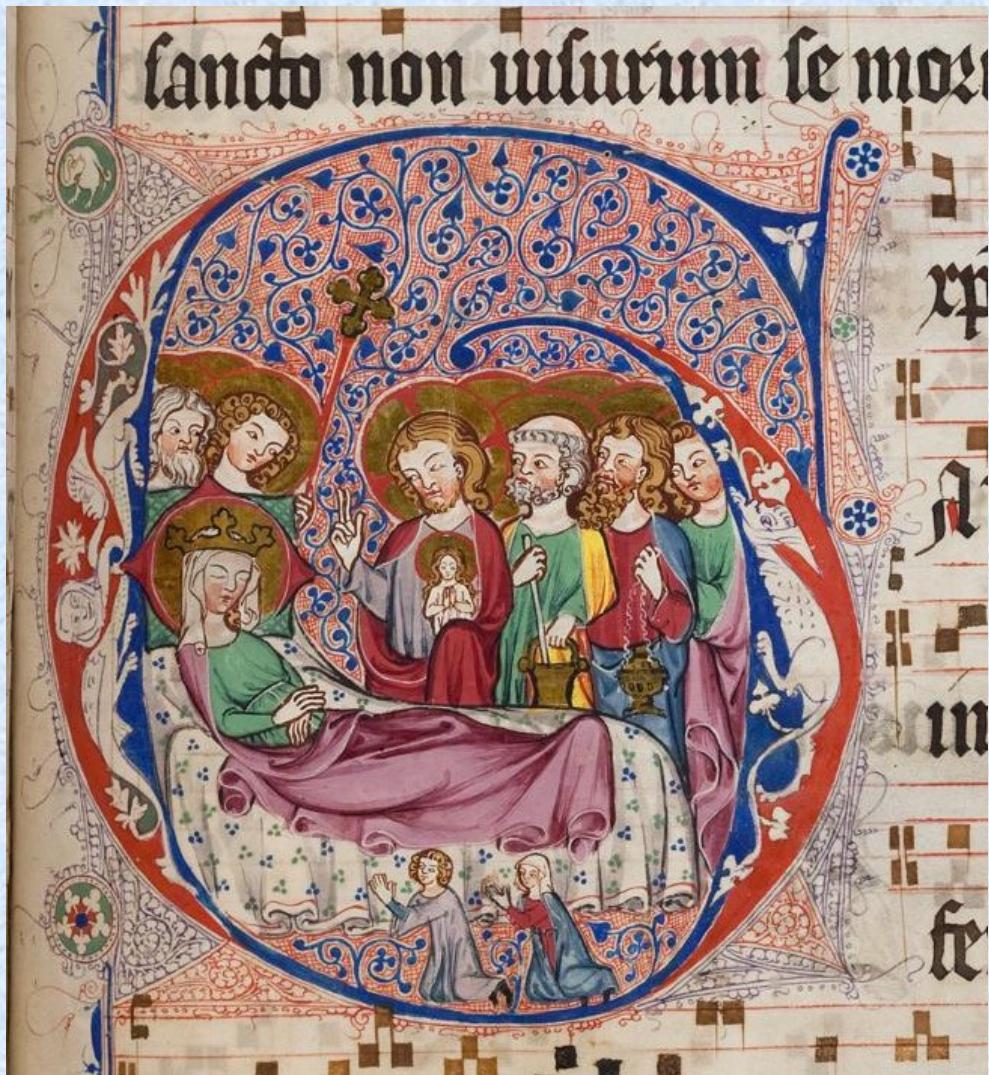 sancto non uisurum se mor
xp̄
A
in